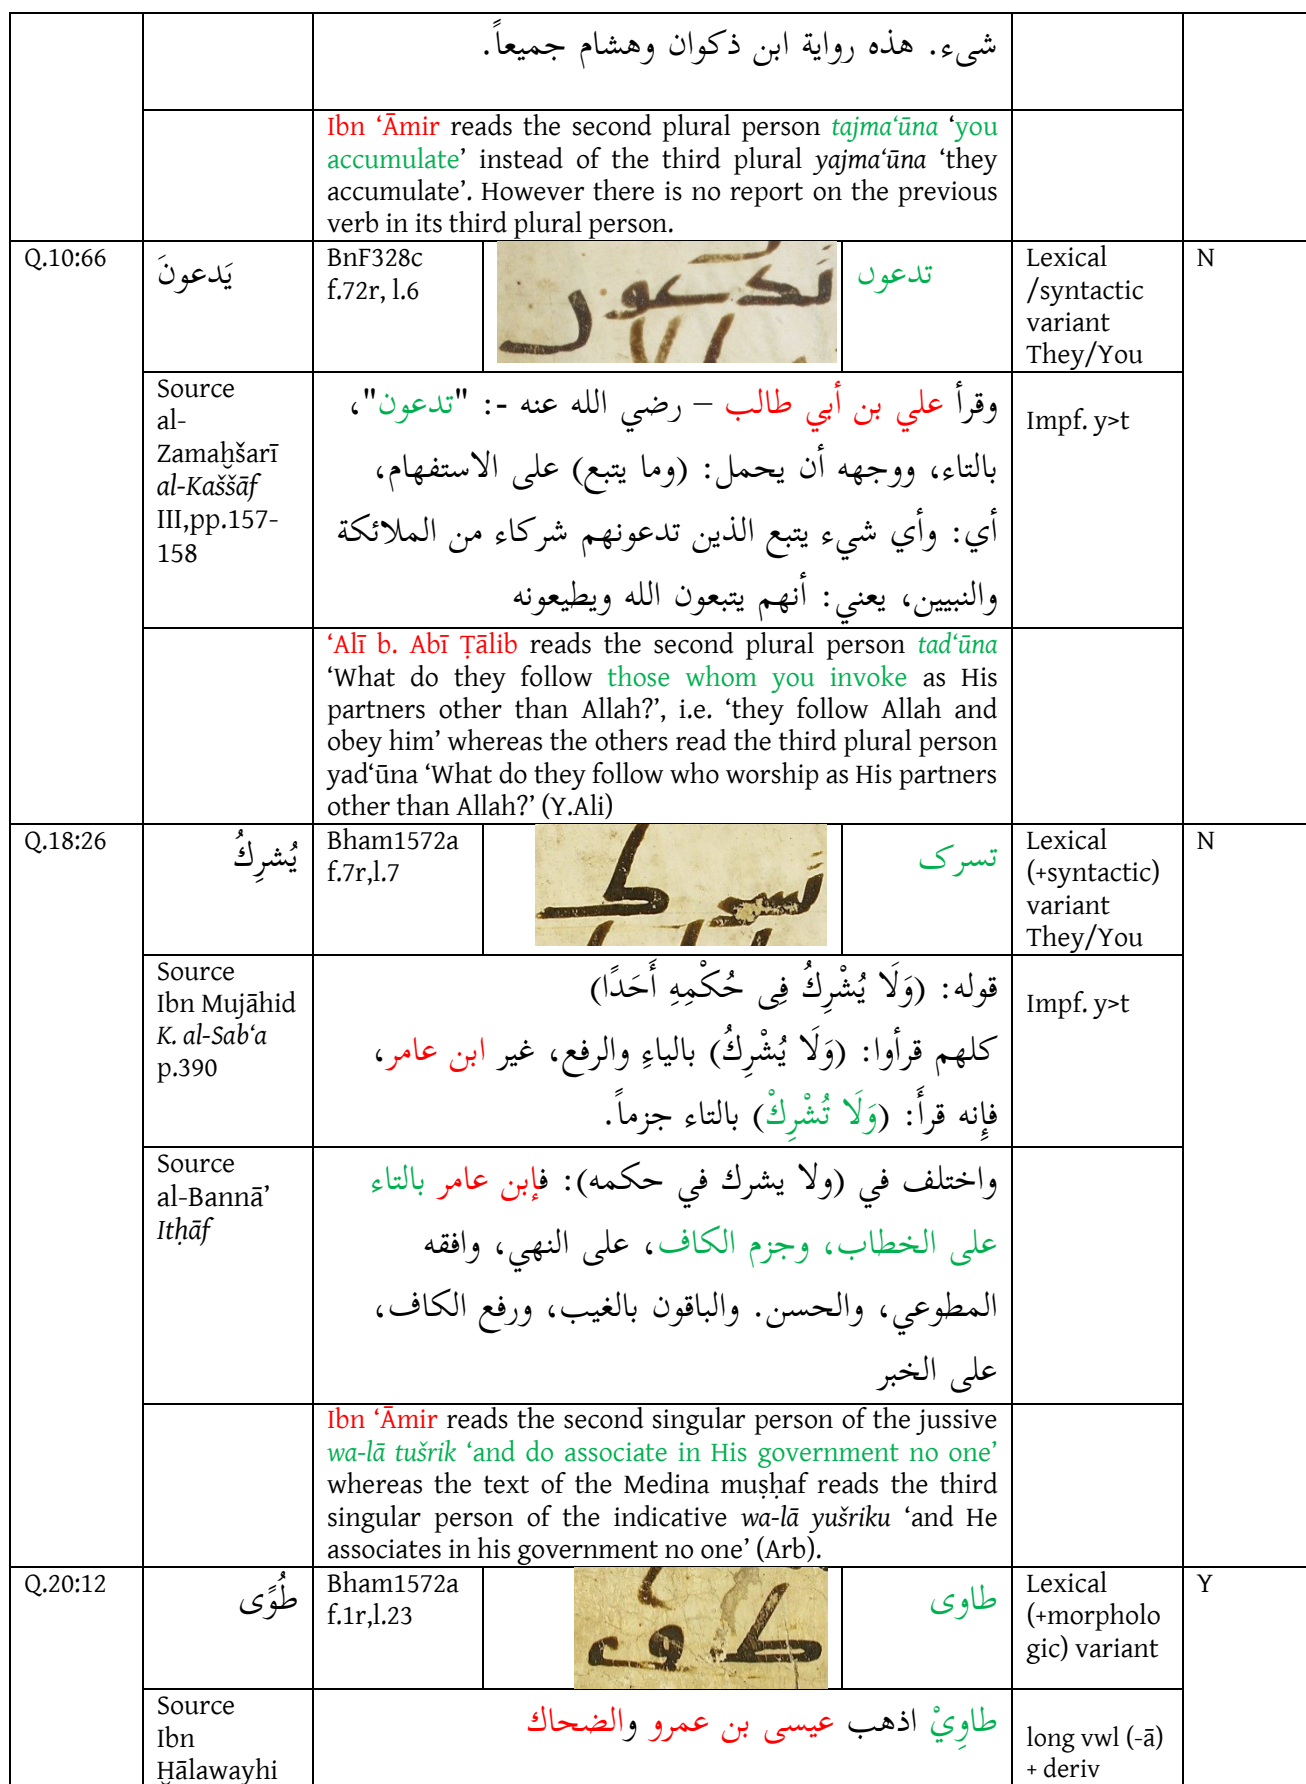 شىء. هذه رواية ابن ذكوان وهشام جميعاً.
Ibn ‘Āmir reads the second plural person tajma‘ūna ‘you
accumulate’ instead of the third plural yajma‘ūna ‘they
accumulate’. However there is no report on the previous
verb in its third plural person.
Q.10:66
يَدعونَ
BnF328c
f.72r, l.6
تدعوں
Lexical
/syntactic
variant
They/You
N
Source
al-
Zamaḫšarī
al-Kaššāf
III,pp.157-
158
وقرأ علي بن أبي طالب – رضي الله عنه -: "تدعون"،
بالتاء، ووجهه أن يحمل: (وما يتبع) على الاستفهام،
أي: وأي شيء يتبع الذين تدعونهم شركاء من الملائكة
والنبيين، يعني: أنهم يتبعون الله ويطيعونه
Impf. y>t
‘Alī b. Abī Ṭālib reads the second plural person tad‘ūna
‘What do they follow those whom you invoke as His
partners other than Allah?’, i.e. ‘they follow Allah and
obey him’ whereas the others read the third plural person
yad‘ūna ‘What do they follow who worship as His partners
other than Allah?’ (Y.Ali)
Q.18:26
يُشرِكُ
Bham1572a
f.7r,l.7
تسرک
Lexical
(+syntactic)
variant
They/You
N
Source
Ibn Mujāhid
K. al-Sab‘a
p.390
قوله: (وَلَا يُشْرِكُ فِى حُكْمِهِ أَحَدًا)
كلهم قرأوا: (وَلَا يُشْرِكُ) بالياءِ والرفع، غير ابن عامر،
فإِنه قرأَ: (وَلَا تُشْرِكْ) بالتاء جزماً.
Impf. y>t
Source
al-Bannā’
Itḥāf
واختلف في (ولا يشرك في حكمه): فإبن عامر بالتاء
على الخطاب، وجزم الكاف، على النهي، وافقه
المطوعي، والحسن. والباقون بالغيب، ورفع الكاف،
على الخبر
Ibn ‘Āmir reads the second singular person of the jussive
wa-lā tušrik ‘and do associate in His government no one’
whereas the text of the Medina muṣḥaf reads the third
singular person of the indicative wa-lā yušriku ‘and He
associates in his government no one’ (Arb).
Q.20:12
طُوًى
Bham1572a
f.1r,l.23
طاوى
Lexical
(+morpholo
gic) variant
Y
Source
Ibn
Ḫālawayhi
طاوِيْ اذهب عيسى بن عمرو والضحاك
long vwl (-ā)
+ deriv